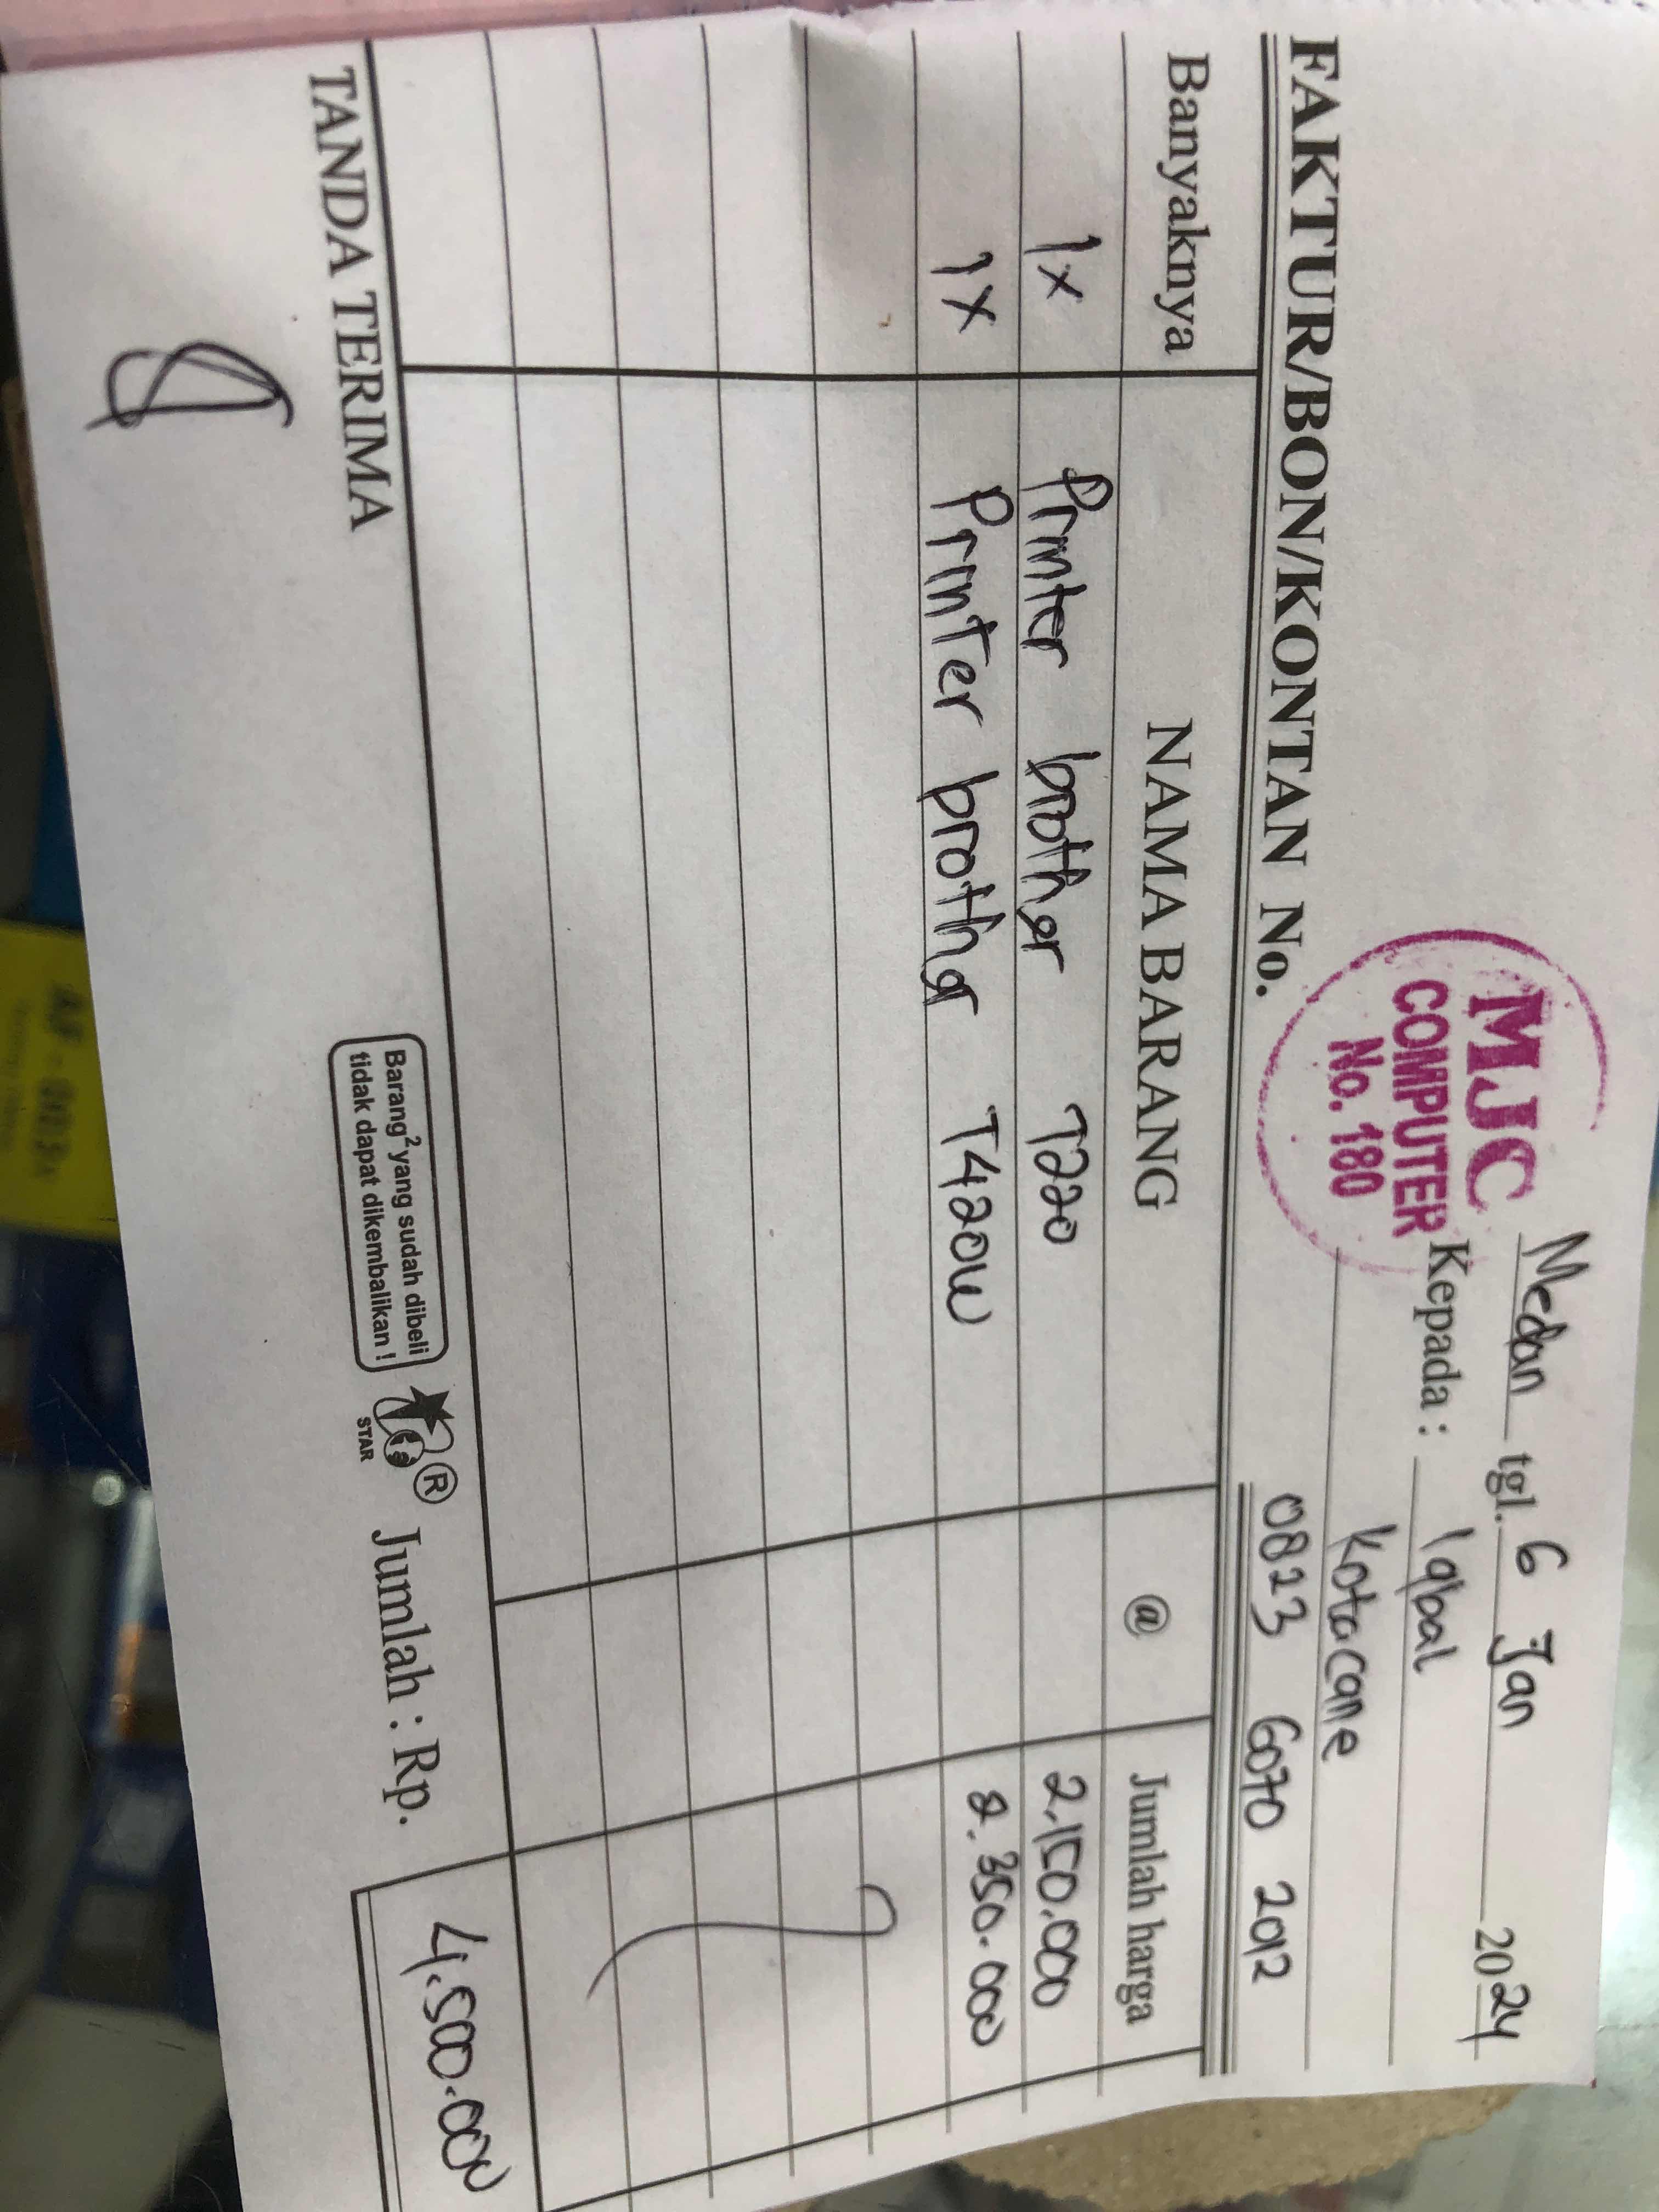 Medan tgl. 6 Jan 2024
MJC
COMPUTER
No. 180
Kepada : Iqbal
Kotacane
FAKTUR/BON/KONTAN No.
0823 6070 2012
Banyaknya NAMA BARANG @ Jumlah harga
1x Printer brother T220 2.150.000
1x Printer brother T420w 2.350.000
TANDA TERIMA
Barang2 yang sudah dibeli
tidak dapat dikembalikan !
STAR
®
Jumlah : Rp. 4.500.000